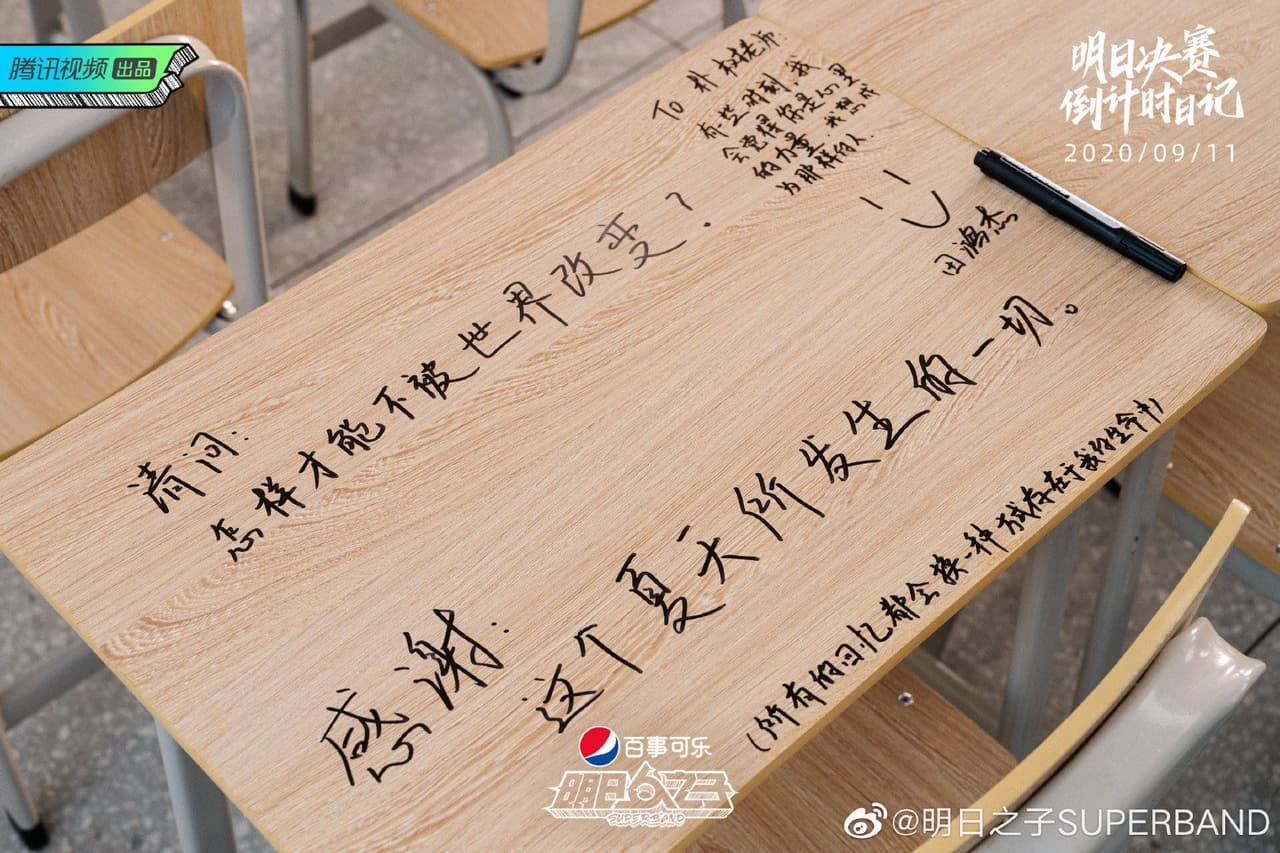 腾讯视频 出品
明日决赛
倒计时日记
2020/09/11
To 朴树老师
有一些时刻，我
会觉得你是心里
的力量，我想成
为那样的人.
田鸿杰
请问：
怎样才能不被世界改变？
感谢：
这个夏天所发生的一切。
（所有的回忆都会换一种方式存在于我的生命中）
百事可乐
明日之子
SUPERBAND
@明日之子SUPERBAND